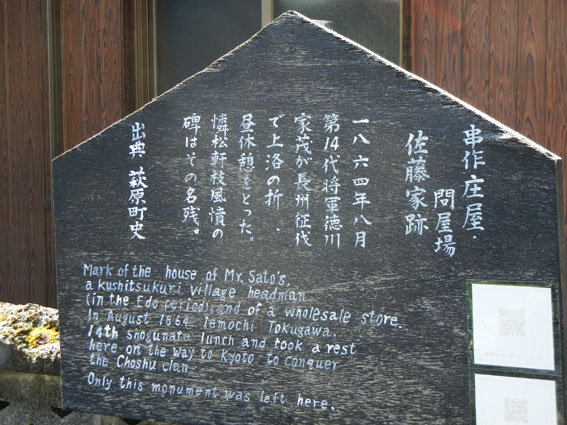 串作庄屋・
問屋場
佐藤家跡
一八六四年八月
第14代将軍徳川
家茂が長州征伐
で上洛の折、
昼休憩をとった。
憐松軒枝風憤の
碑はその名残。
出典 萩原町史
Mark of the house of Mr. Sato's,
a kushitsukuri village headman
(in the Edo period) and of a wholesale store.
In August 1864 Iemochi Tokugawa,
14th shogunate lunch and took a rest
here on the way to Kyoto to conquer
the Choshu clan
Only this monument was left here.